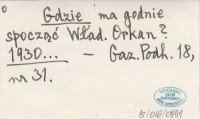 Gdzie ma godnie
spocząć Wład. Orkan?
1930... — Gaz. Podh. 18,
nr 31.